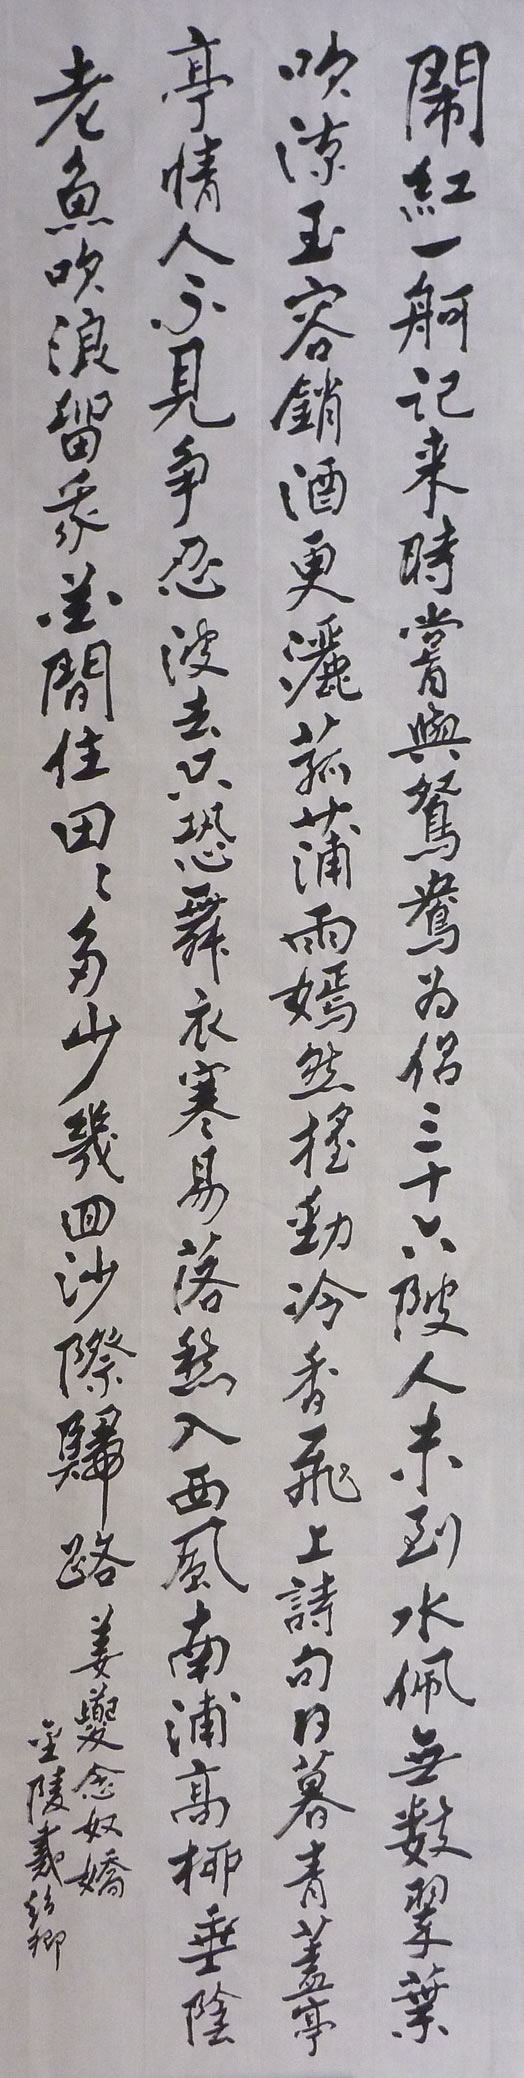 閙紅一舸記来時嘗與鴛鴦为侣三十六陂人未到水佩無数翠葉
吹涼玉容銷酒更灑菰蒲雨嫣然摇動冷香飛上詩句日暮青蓋亭
亭情人不見争忍波去只恐舞衣寒易落愁入西風南浦高柳垂陰
老魚吹浪留我花間住田〻多少幾回沙際歸路
姜夔念奴嬌
金陵戴紹卿